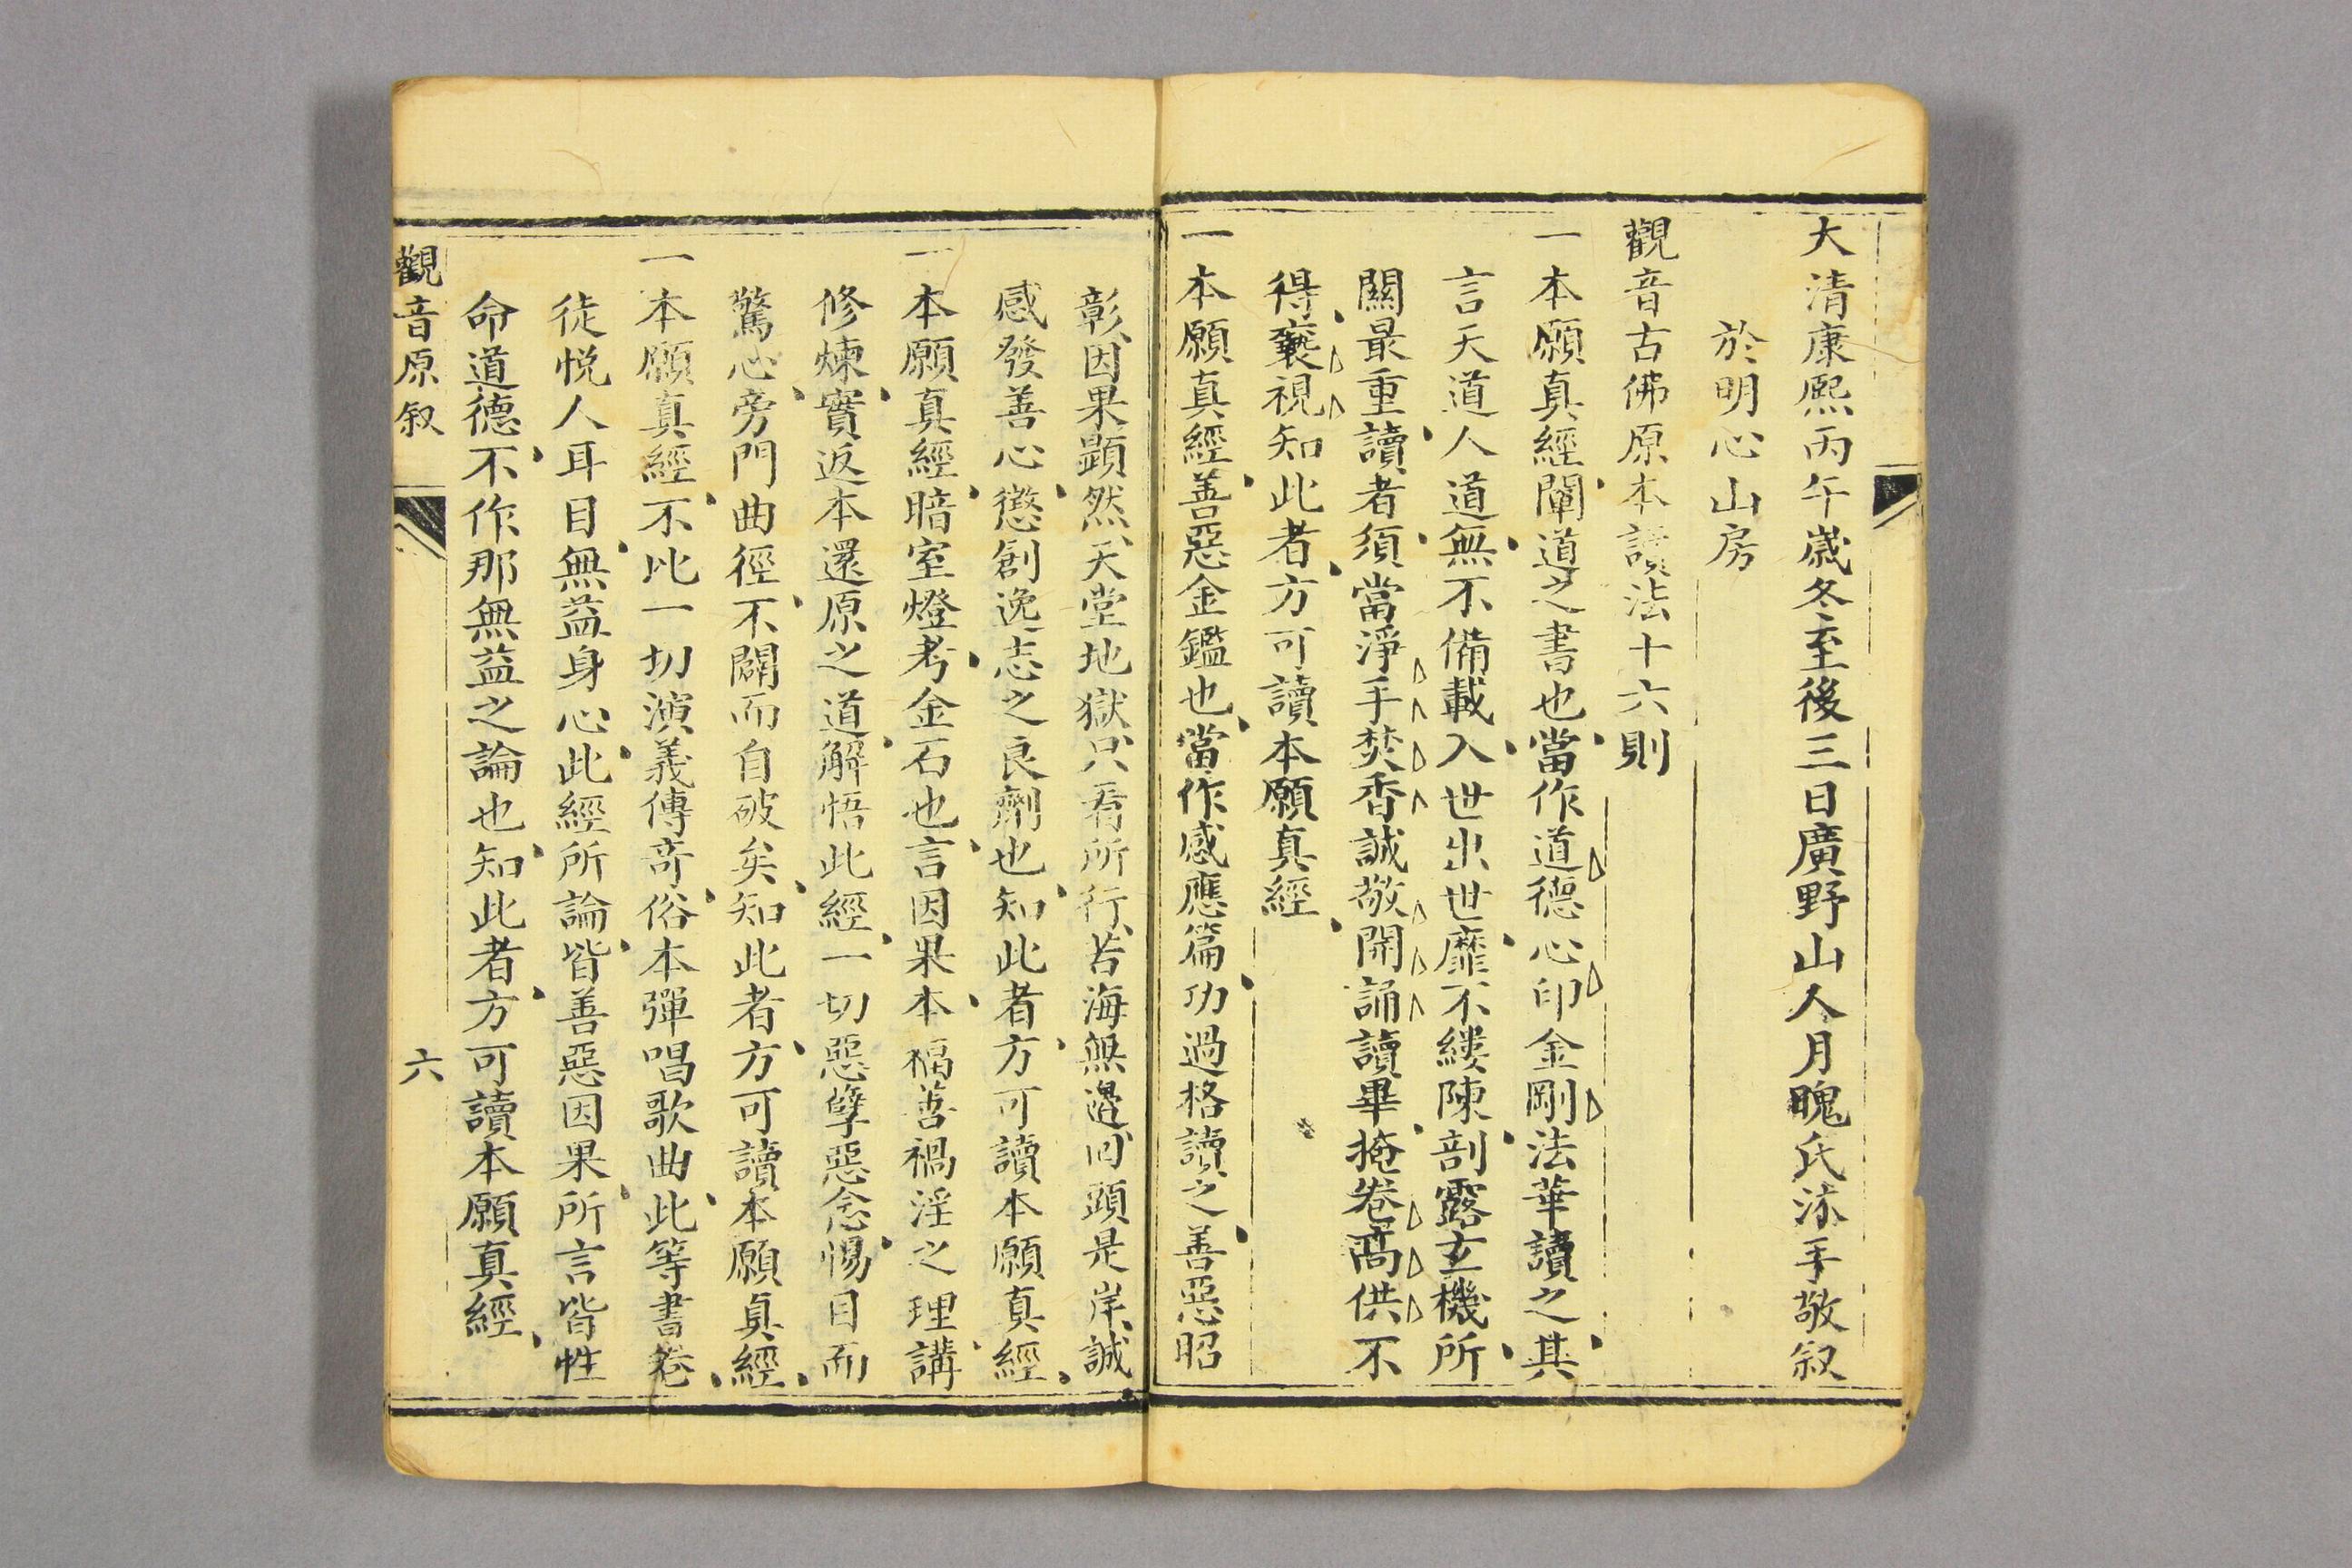 大清康熙丙午歲冬至後三日廣野山人月魄氏沐手敬叙
於明心山房
觀音古佛原本讀法十六則
一本願真經闡道之書也當作道德心印金剛法華讀之其
言天道人道無不備載入世出世靡不縷陳剖露玄機所
關最重讀者須當淨手焚香誠敬開誦讀畢掩卷高供不
得褻視知此者方可讀本願真經
一本願真經善惡金鑑也當作感應篇功過格讀之善惡昭
彰因果顕然天堂地獄只看所行苦海無邊回頭是岸誠
感發善心懲創逸志之良劑也知此者方可讀本願真經
一本願真經暗室燈考金石也言因果本福善禍淫之理講
修煉實返本還原之道解悟此經一切惡孽惡念惕目而
驚心旁門曲徑不闢而自破矣知此者方可讀本願真經
一本願真經不比一切演義傳奇俗本彈唱歌曲此等書卷
徒悅人耳目無益身心此經所論皆善惡因果所言皆性
命道德不作那無益之論也知此者方可讀本願真經
觀音原叙
六